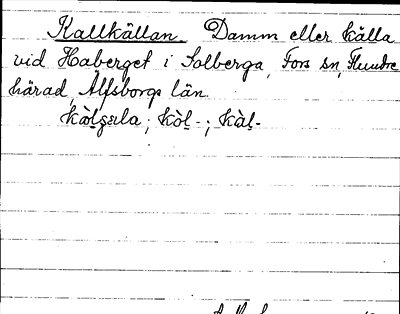 Kallkällan. Damm eller källa
vid Haberget i Solberga, Fors sn, Flundre
härad, Älfsborgs län.